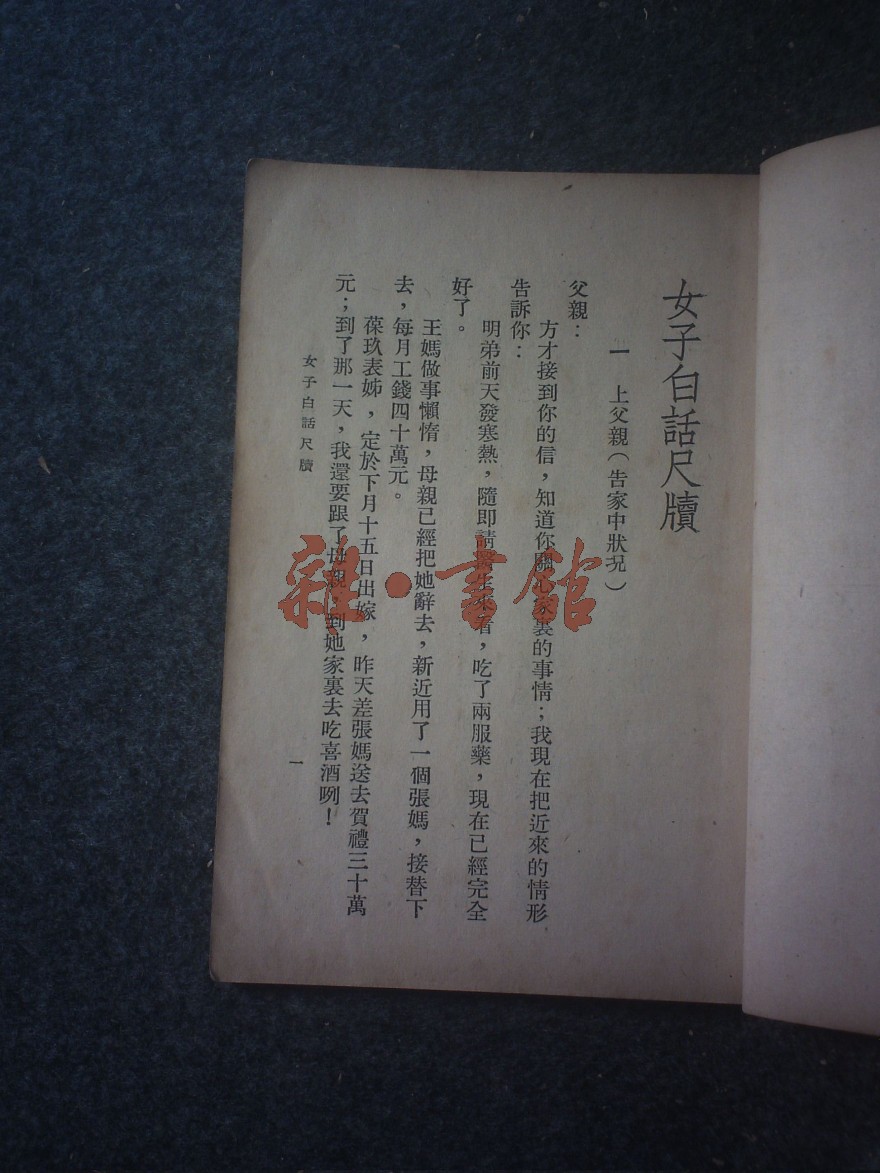 女子白話尺牘
一 上父親(告家中狀况)
父親:
方才接到你的信,知道你關心家裏的事情;我現在把近來的情形
告訴你:
明弟前天發寒熱,隨即請醫生來看,吃了兩服藥,現在已經完全
好了。
王媽做事懶惰,母親已經把她辭去,新近用了一個張媽,接替下
去,每月工錢四十萬元。
葆玖表姊,定於下月十五日出嫁,昨天差張媽送去賀禮三十萬
元;到了那一天,我還要跟了母親,到她家裏去吃喜酒咧!
女子白話尺牘
一
雜·書館